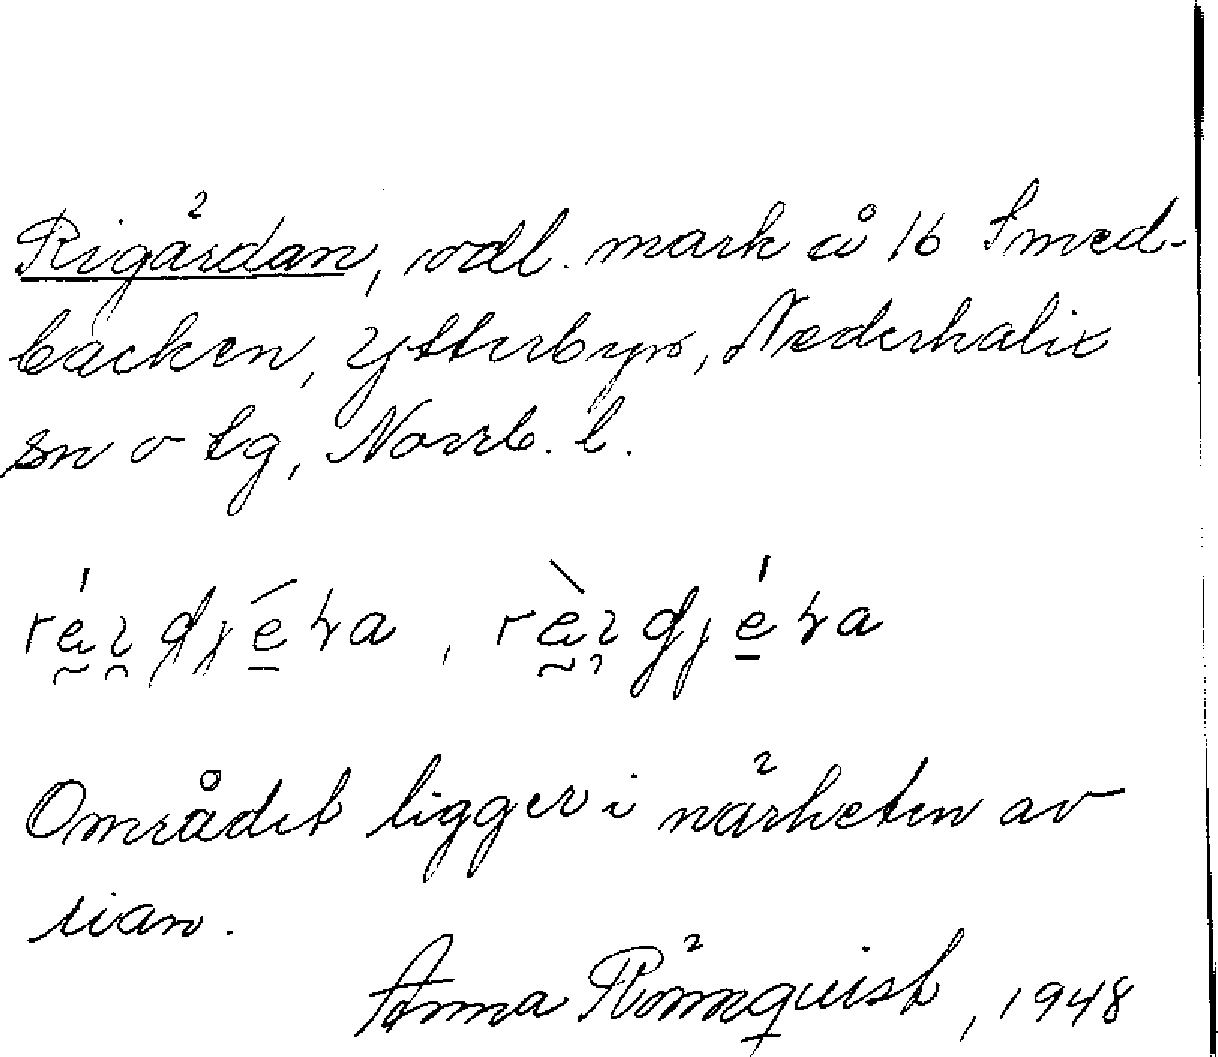 Rigärdan, odl. mark å 16 Smed-
backen, Ytterbyn, Nederkalix
sn o tg, Norrb. l.
Området ligger i närheten av
rian.
Anna Rönnquist, 1948